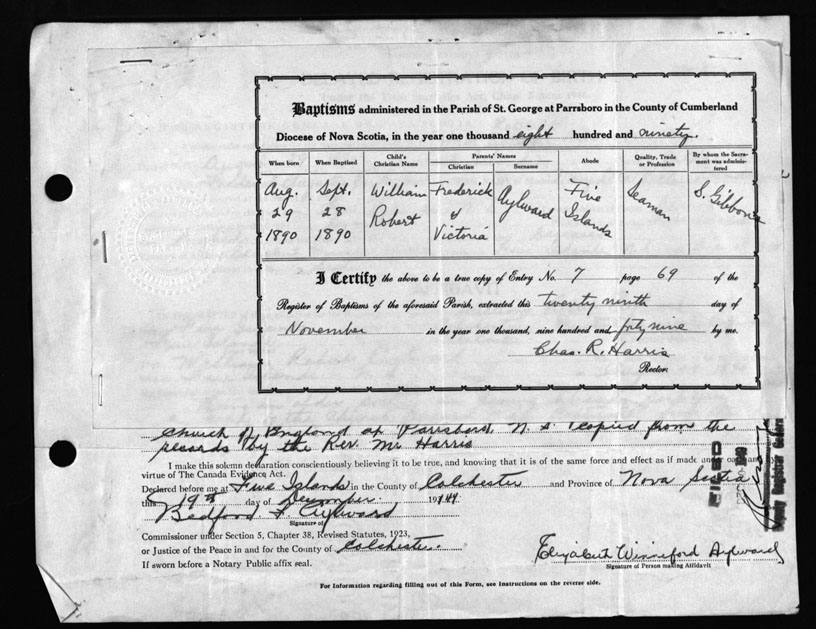 Baptisms administered in the Parish of St. George at Parrsboro in the County of Cumberland
Diocese of Nova Scotia, in the year one thousand eight hundred and ninety.
When born When Baptised Child's Christian Name Parents' Names Christian Surname Abode Quality, Trade or Profession By whom the Sacrament was administered
Aug. Sept. William Frederick Aylward Five Seaman S. Gibbons
29 28 Robert & Islands
1890 1890 Victoria
I Certify the above to be a true copy of Entry No. 7 page 69 of the
Register of Baptisms of the aforesaid Parish, extracted this twenty ninth day of
November in the year one thousand, nine hundred and forty nine by me.
Chas. R. Harris
Rector.
Church of England at Parrsboro, N. S. copied from the
records by the Rev. Mr Harris
I make this solemn declaration conscientiously believing it to be true, and knowing that it is of the same force and effect as if made under oath
virtue of The Canada Evidence Act.
Declared before me at Five Islands in the County of Colchester and Province of Nova Scotia
this 19th day of December 1949.
Bedford F. Aylward
Signature of
Commissioner under Section 5, Chapter 38, Revised Statutes, 1923,
or Justice of the Peace in and for the County of Colchester.
If sworn before a Notary Public affix seal.
Elizabeth Winneford Aylward
Signature of Person making Affidavit
For Information regarding filling out of this Form, see Instructions on the reverse side.
Deputy Registrar General